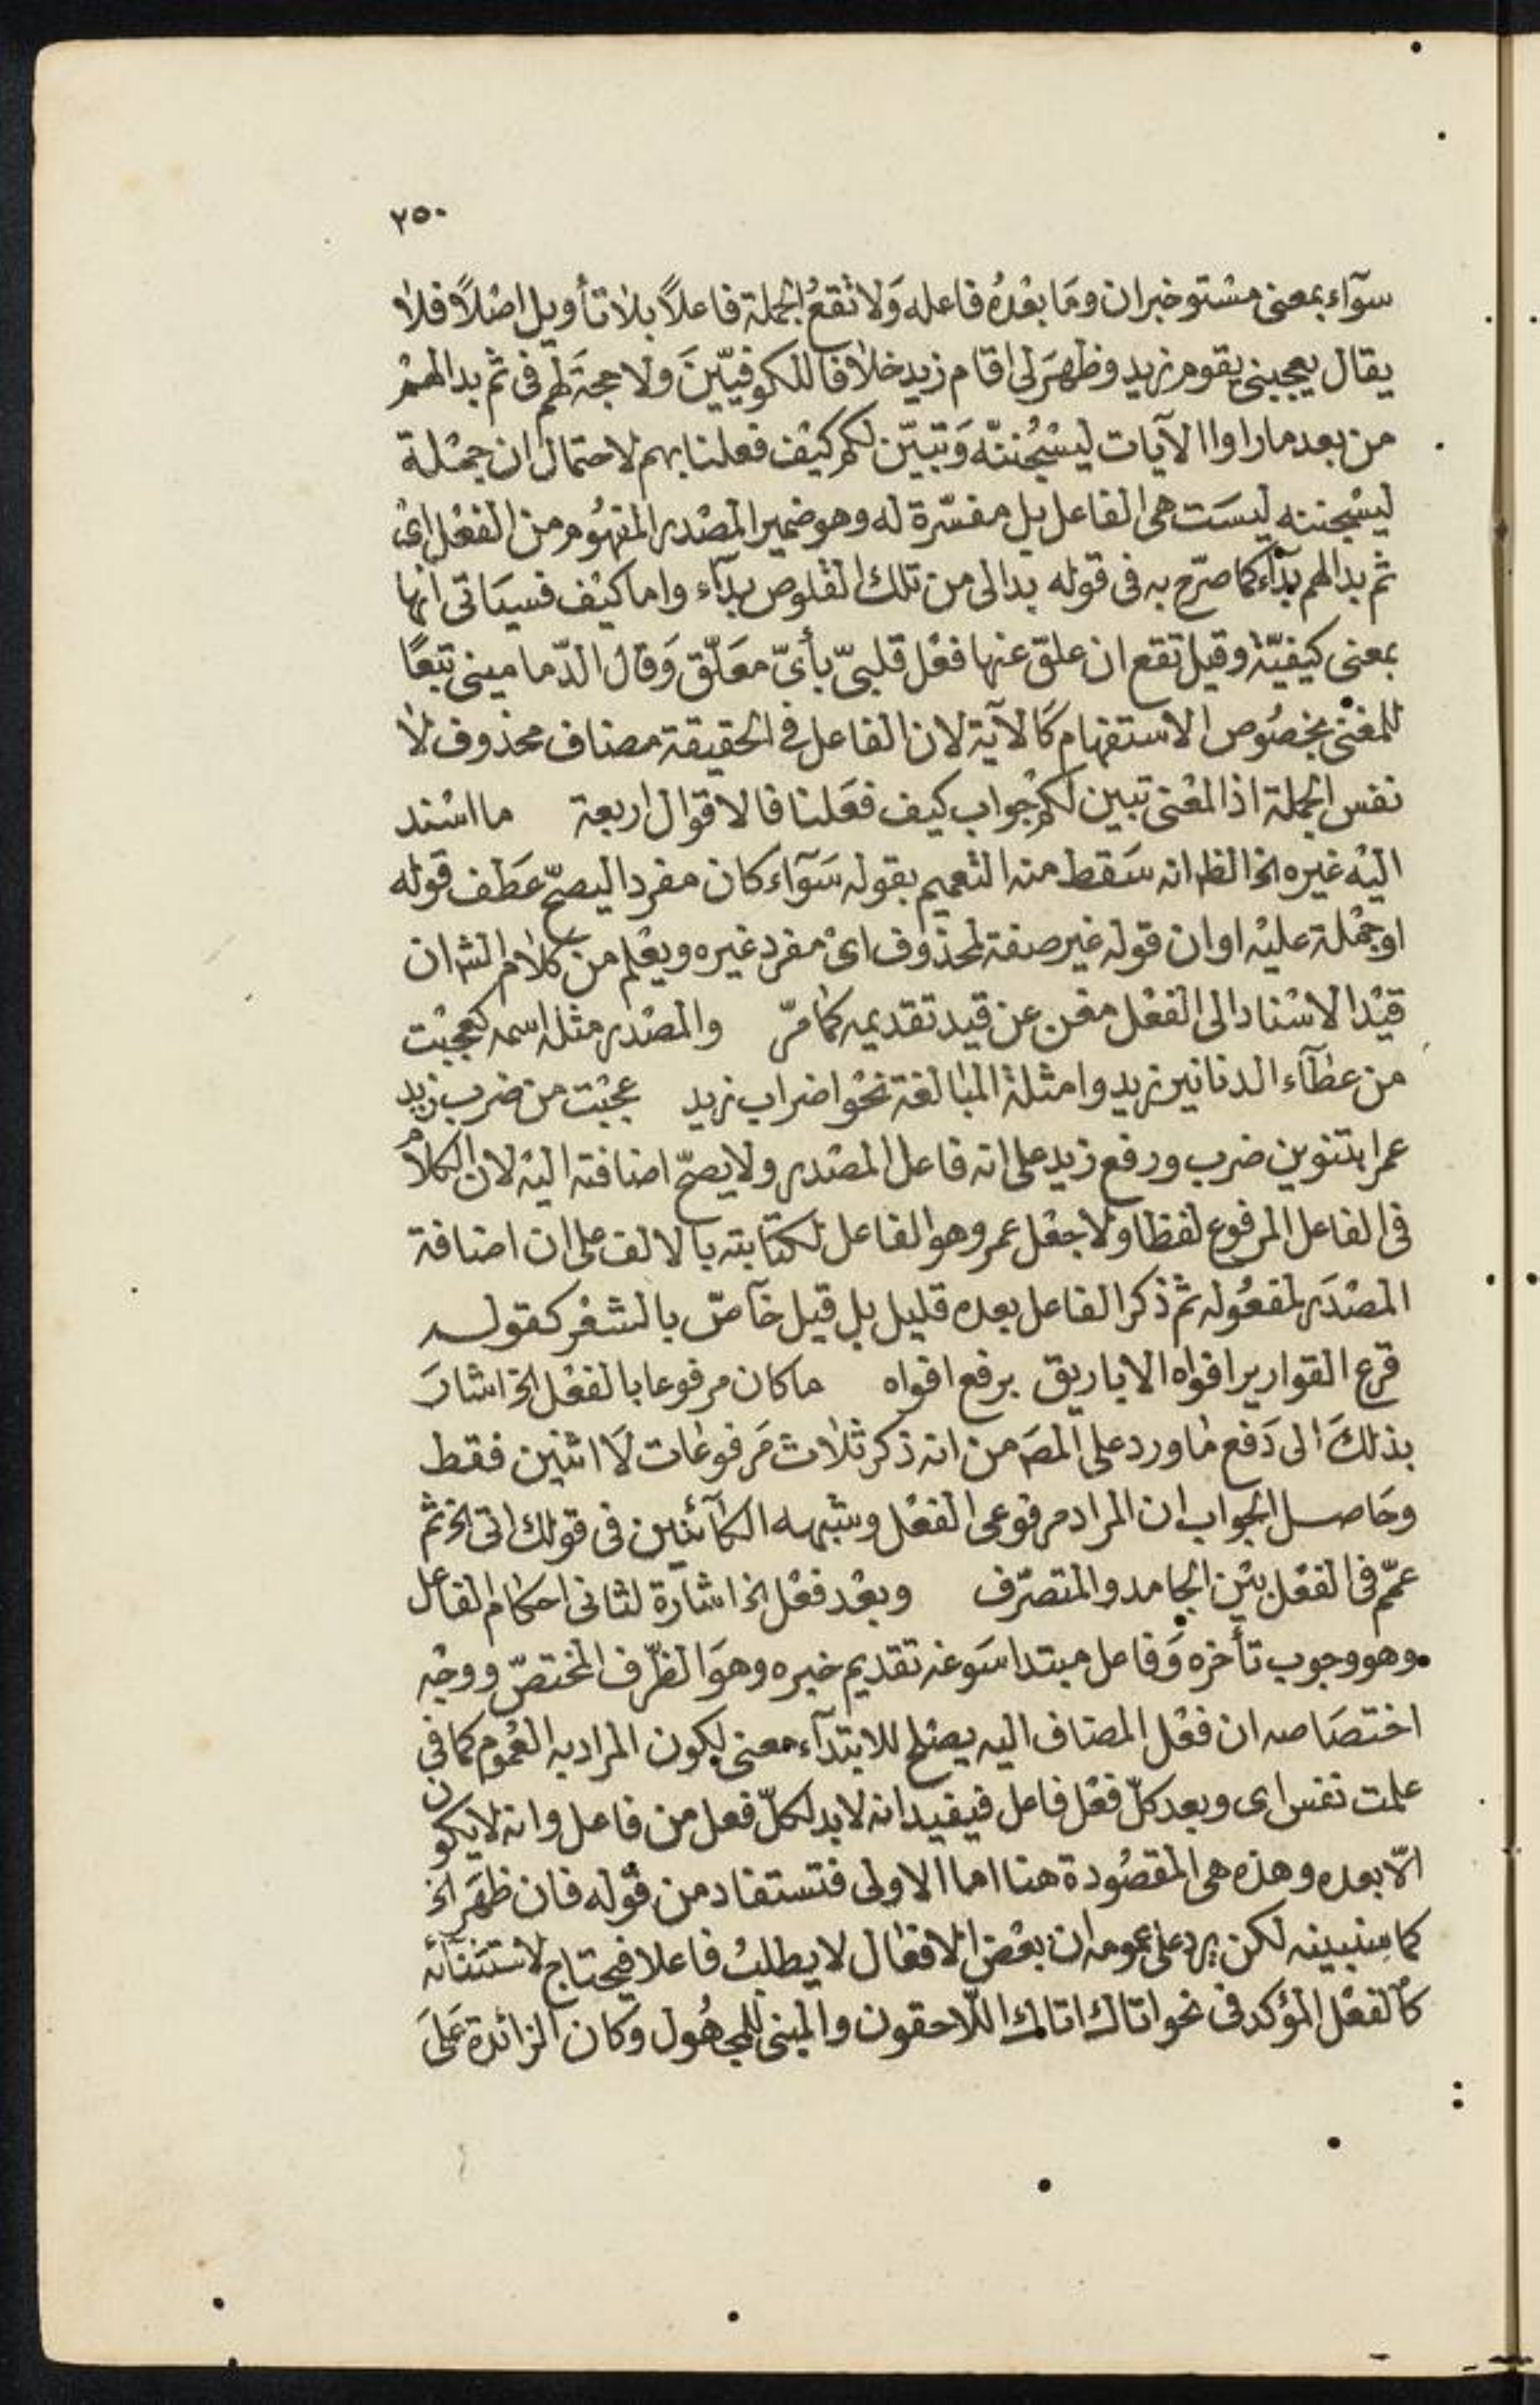 ٢٥٠
سوآء بمعنى مستو خبر ان وما بعده فاعله ولا تقع الجملة فاعلاً بلا تأويل اصلاً فلا
يقال يعجبنى يقوم زيد وظهر لى اقام زيد خلافا للكوفيين ولا حجة لهم فى ثم بدا لهم
من بعد ما راوا الآيات ليسجننه وتبين لكم كيف فعلنا بهم لاحتمال ان جملة
ليسجننه ليست هى الفاعل بل مفسرة له وهو ضمير المصدر المفهوم من الفعل اى
ثم بدا لهم بدآء كما صرح به فى قوله بدا لى من تلك القلوص بدآء واما كيف فسياتى انها
بمعنى كيفية وقيل تقع ان علق عنها فعل قلبىّ بأىّ معلّق وقال الدّمامينى تبعًا
للمغنى بخصوص الاستفهام كالآية لان الفاعل فى الحقيقة مضاف محذوف لا
نفس الجملة اذ المعنى تبين لكم جواب كيف فعلنا فالاقوال اربعة ما اسند
اليه غيره الخ الظ انه سقط منه التعميم بقوله سوآء كان مفردا ليصحّ عطف قوله
او جملة عليه او ان قوله غير صفة لمحذوف اى مفرد غيره ويعلم من كلام الش ان
قيد الاسناد الى الفعل مغن عن قيد تقديمه كما مرّ والمصدر مثله اسمه كعجبت
من عطآء الدنانير زيد وامثلة المبالغة نحو اضراب زيد عجبت من ضرب زيد
عمرا بتنوين ضرب ورفع زيد على انه فاعل المصدر ولا يصحّ اضافته اليه لان الكلام
فى الفاعل المرفوع لفظا ولا جعل عمرو هو الفاعل لكتابته بالالف على ان اضافة
المصدر لمفعوله ثم ذكر الفاعل بعده قليل بل قيل خآصّ بالشعر كقوله
قرع القوارير افواه الاباريق برفع افواه ما كان مرفوعا بالفعل الخ اشار
بذلك الى دفع ما ورد على المص من انه ذكر ثلاث مرفوعات لا اثنين فقط
وحاصل الجواب ان المراد مرفوعى الفعل وشبهه الكآئنين فى قولك اتى الخ ثم
عمّم فى الفعل بين الجامد والمتصرّف وبعد فعل الخ اشارة لثانى احكام الفاعل
وهو وجوب تأخره وفاعل مبتدا سوغه تقديم خبره وهو الظّرف المختصّ ووجه
اختصاصه ان فعل المضاف اليه يصلح للابتدآء معنى لكون المراد به العموم كما فى
علمت نفس اى وبعد كلّ فعل فاعل فيفيد انه لا بد لكلّ فعل من فاعل وانه لا يكون
الّا بعده وهذه هى المقصودة هنا اما الاولى فتستفاد من قوله فان ظهر الخ
كما سنبينه لكن يرد على عمومه ان بعض الافعال لا يطلب فاعلا فيحتاج لاستثنآئه
كالفعل المؤكد فى نحو اتاك اتاك اللّاحقون والمبنى للمجهول وكان الزائدة على